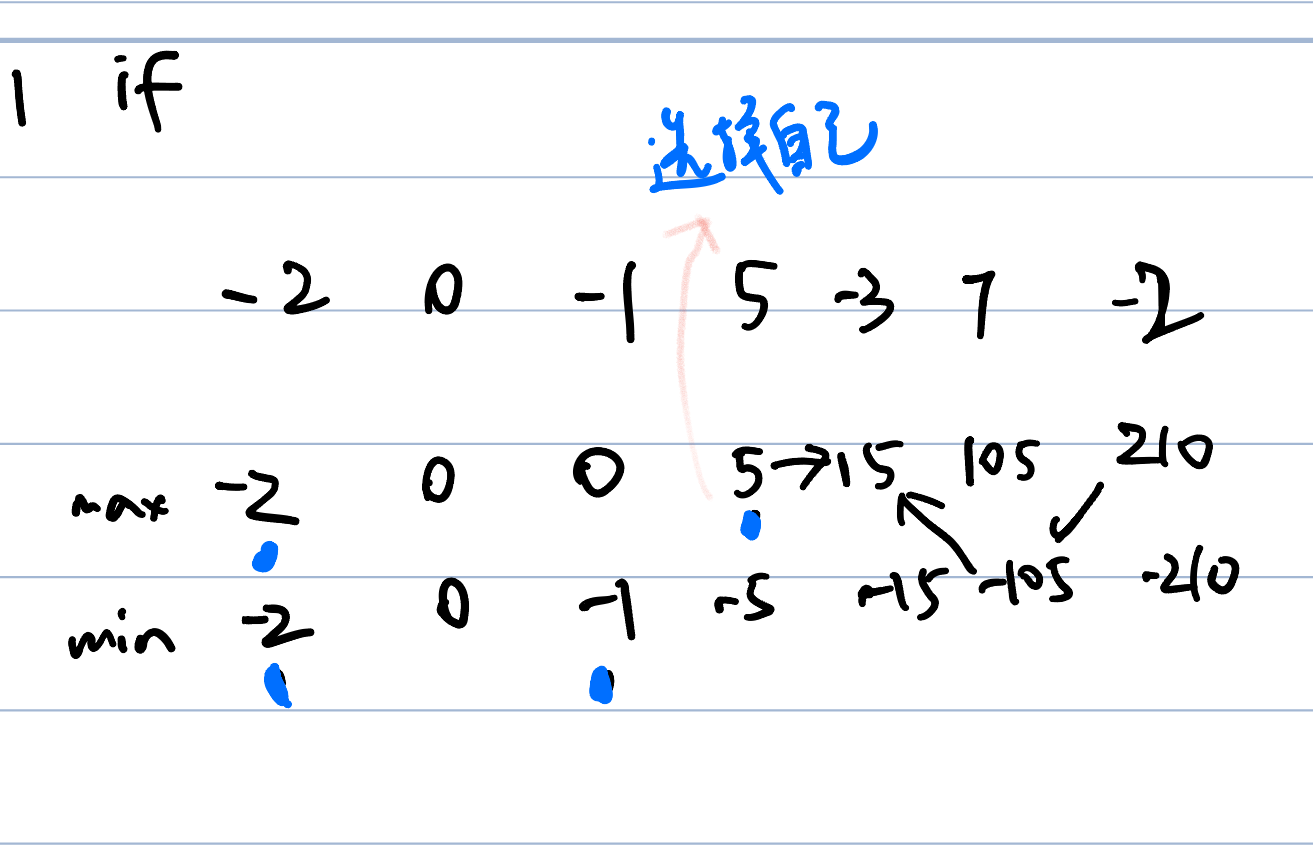 1 if
选择自己
-2 0 -1 5 -3 7 -2
max -2 0 0 5 → 15 105 210
min -2 0 -1 -5 -15 -105 -210